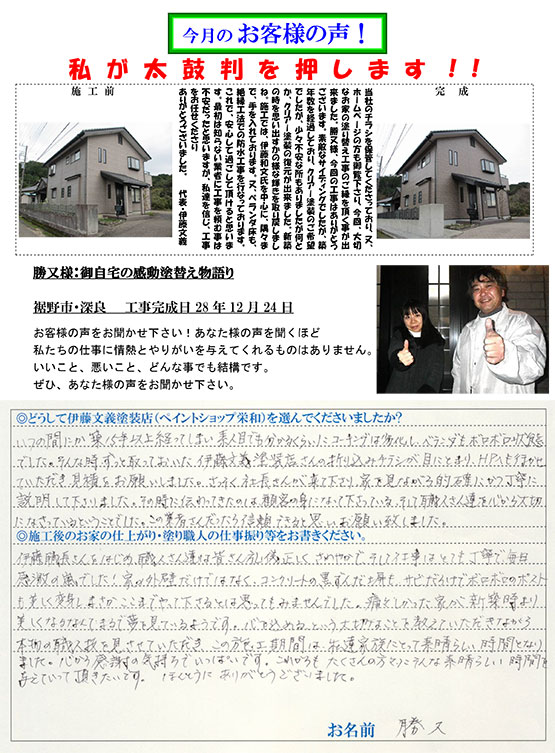 今月の お客様の声！
私が太鼓判を押します!!
施工前
完成
当社のチラシを保管してくださっており、又、
ホームページの方も御覧下さり、今回、大切
なお家の塗り替え工事のご縁を頂く事が出
来ました。勝又様、今回の工事はありがとう
ございます。素敵なサイディングでしたが、築
年数を経過しており、クリアー塗装のご希望
でしたが、少々不安な所もありましたが何と
か、クリアー塗装の復元が出来ました。新築
の時を思い出すかの様な輝きを取り戻しまし
た。施工では、伊藤和文氏を中心に、隅々ま
で、手を入れております。又、ベランダ床も、
絶縁工法での防水工事を行なっております。
これで、安心して過ごして頂けると思いま
す。最初は知らない業者に工事を頼む事は
不安だったと思いますが、私達を信じ、工事
をお任せくださり
ありがとうございました。 代表・伊藤文義
勝又様：御自宅の感動塗替え物語り
裾野市・深良 工事完成日28年12月24日
お客様の声をお聞かせ下さい！あなた様の声を聞くほど
私たちの仕事に情熱とやりがいを与えてくれるものはありません。
いいこと、悪いこと、どんな事でも結構です。
ぜひ、あなた様の声をお聞かせ下さい。
◎どうして伊藤文義塗装店（ペイントショップ栄和）を選んでくださいましたか？
いつの間にか築 年以上が経ってしまい素人目でも分かるくらいにコーキングは劣化し、ベランダもボロボロな状態
でした。そんな時ずっと取っておいた伊藤文義塗装店さんの折り込みチラシが目にとまり、HPも拝見させ
ていただき見積をお願いしました。さっそく社長さんが来て下さり、家を見ながら的確にかつ丁寧に
説明して下さりました。その時に伝わってきたのは顧客の身になって下さっている、そして職人さん達を心から大切
になさっているということでした。この業者さんだったら信頼できると思いお願い致しました。
◎施工後のお家の仕上がり・塗り職人の仕事振り等をお書きください。
伊藤職長さんをはじめ、職人さん達は皆さん礼儀正しく、さわやかで、そして仕事はとても丁寧で毎日
感激の嵐でした！家の外壁だけではなく、コンクリートの黒ずんだ塀も、サビだらけでボロボロのポスト
も美しく変身し、まさかここまでやって下さるとは思ってもみませんでした。痛々しかった家が、新築時より
美しくなるなんてまるで夢を見ているようです。心を込めるという大切なことを教えていただきながら
本物の職人技を見させていただき、この 工期間は、私達家族にとって素晴らしい時間となり
ました。心から感謝の気持ちでいっぱいです。これからもたくさんの方々にこんな素晴らしい時間を
与えていって頂きたいです。 ほんとうにありがとうございました。
お名前 勝又